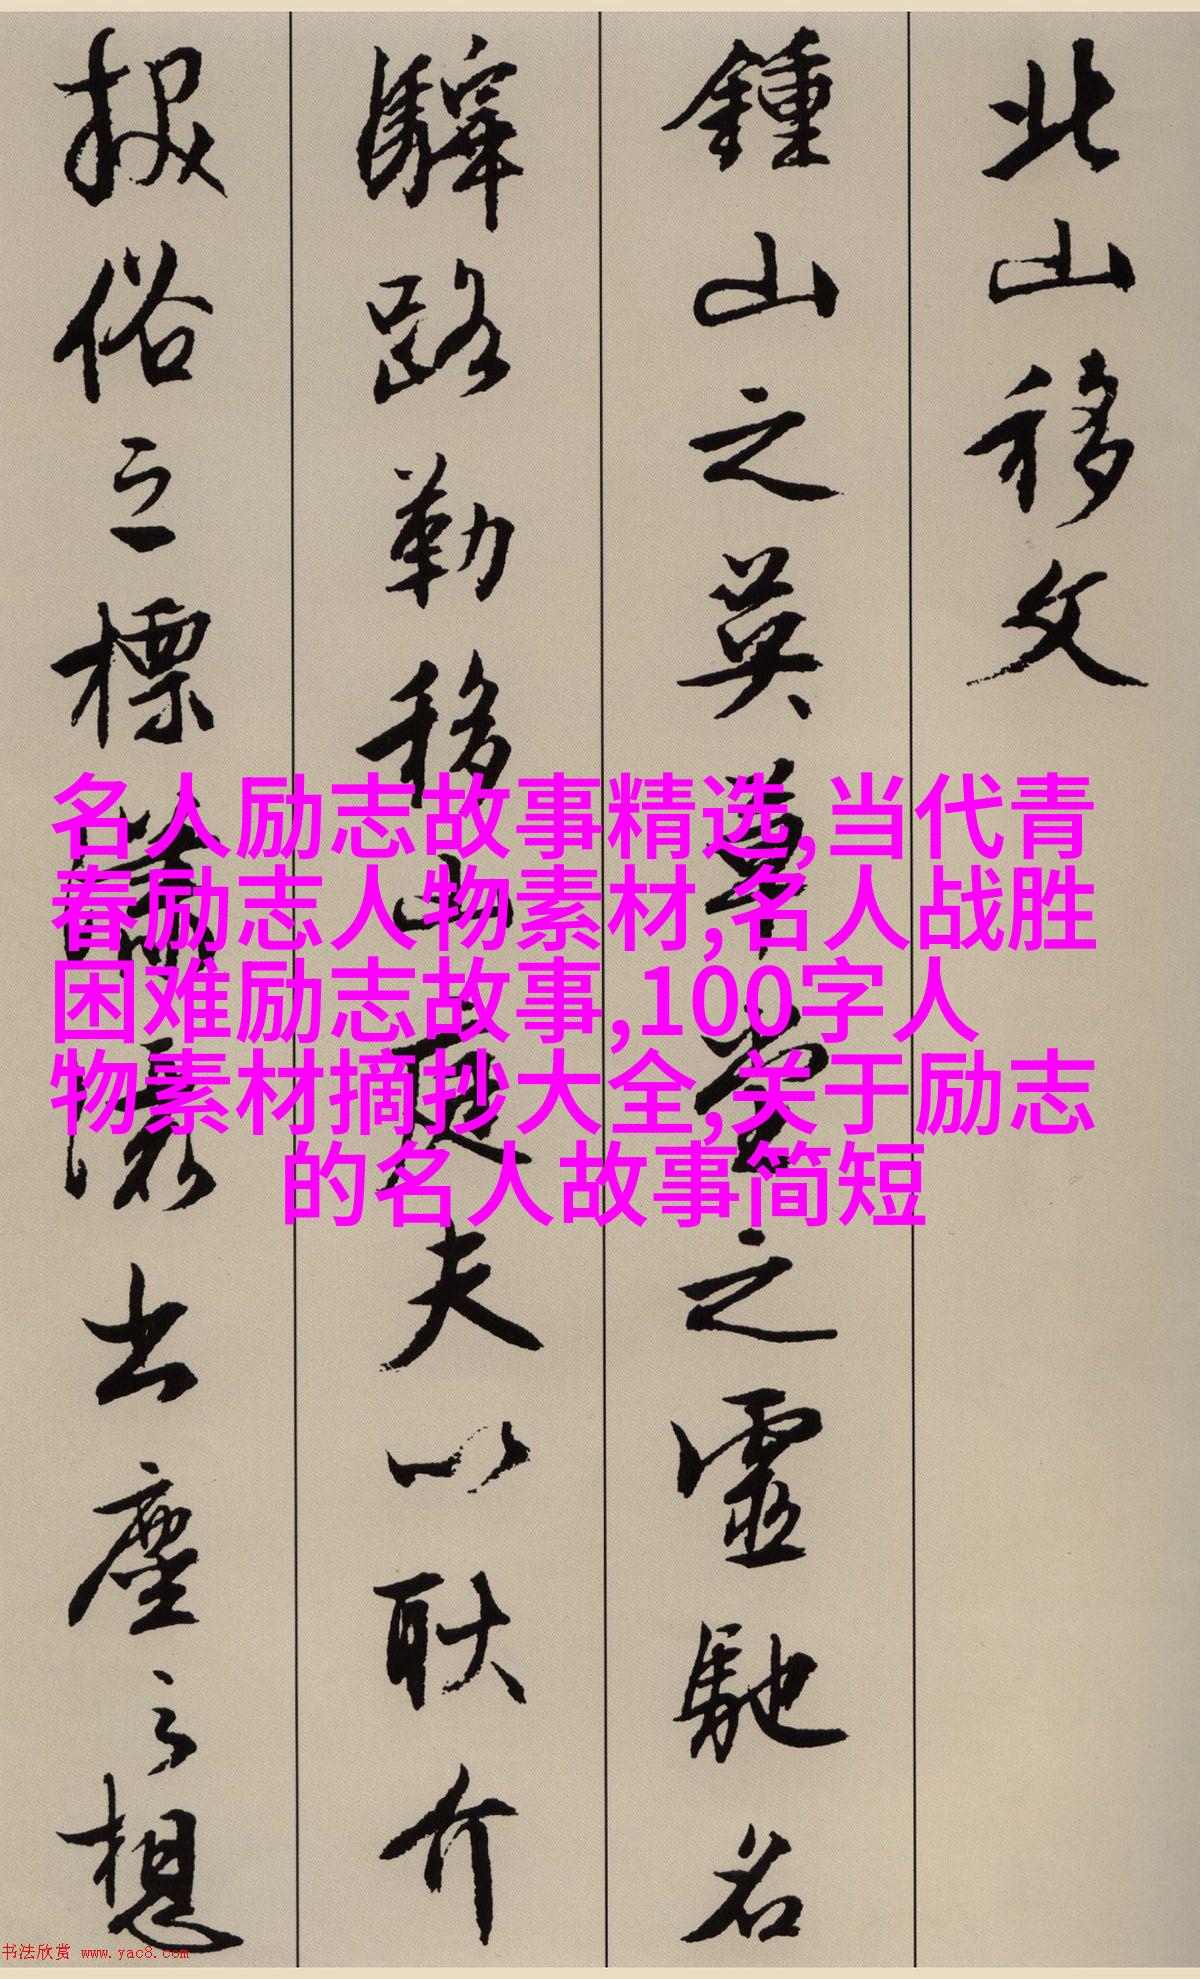 北山移文
鍾山之英草堂之靈馳名
驛路勒移山庭夫以耿介
拔俗之標蕭灑出塵之想
名人励志故事精选,当代青
春励志人物素材,名人战胜
困难励志故事,100字人
物素材摘抄大全,关于励志
的名人故事简短
书法欣赏 www.yac8.com